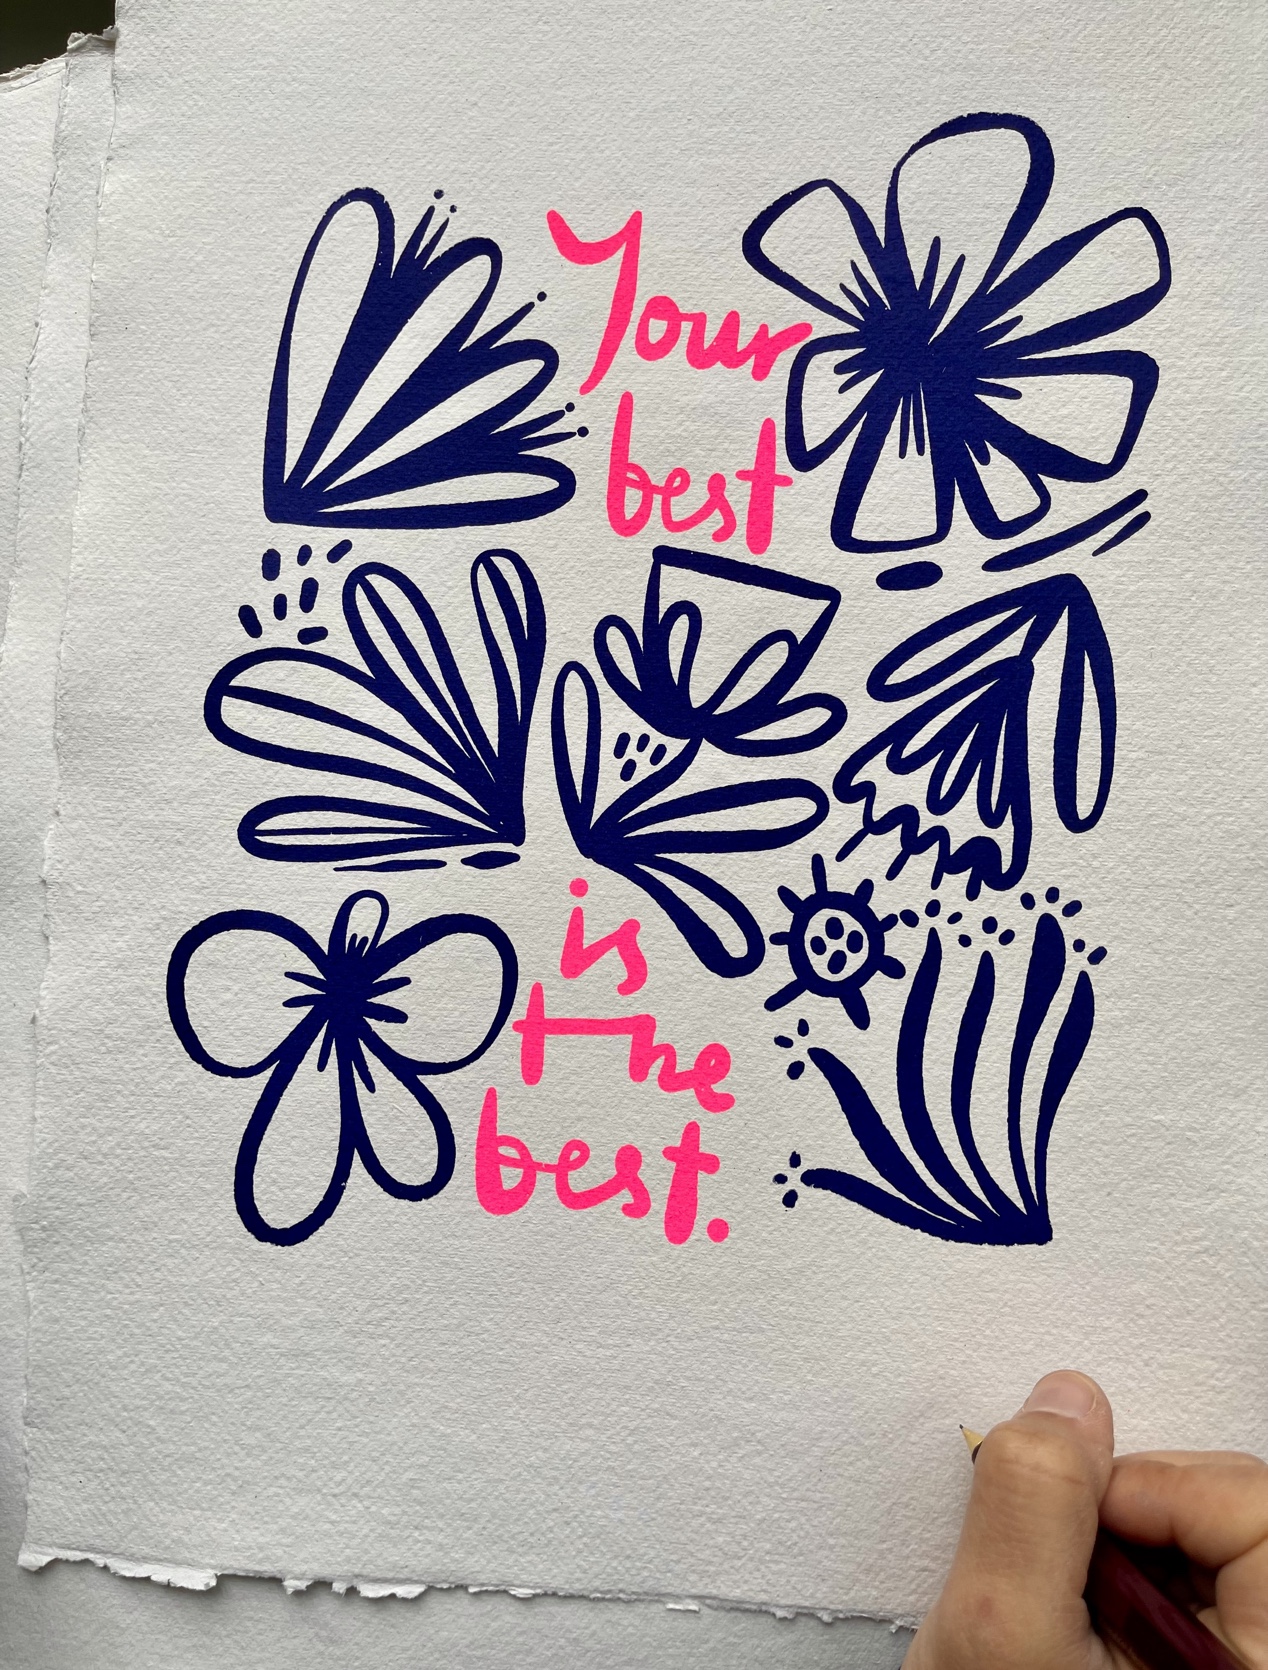 Your
best
is
the
best.